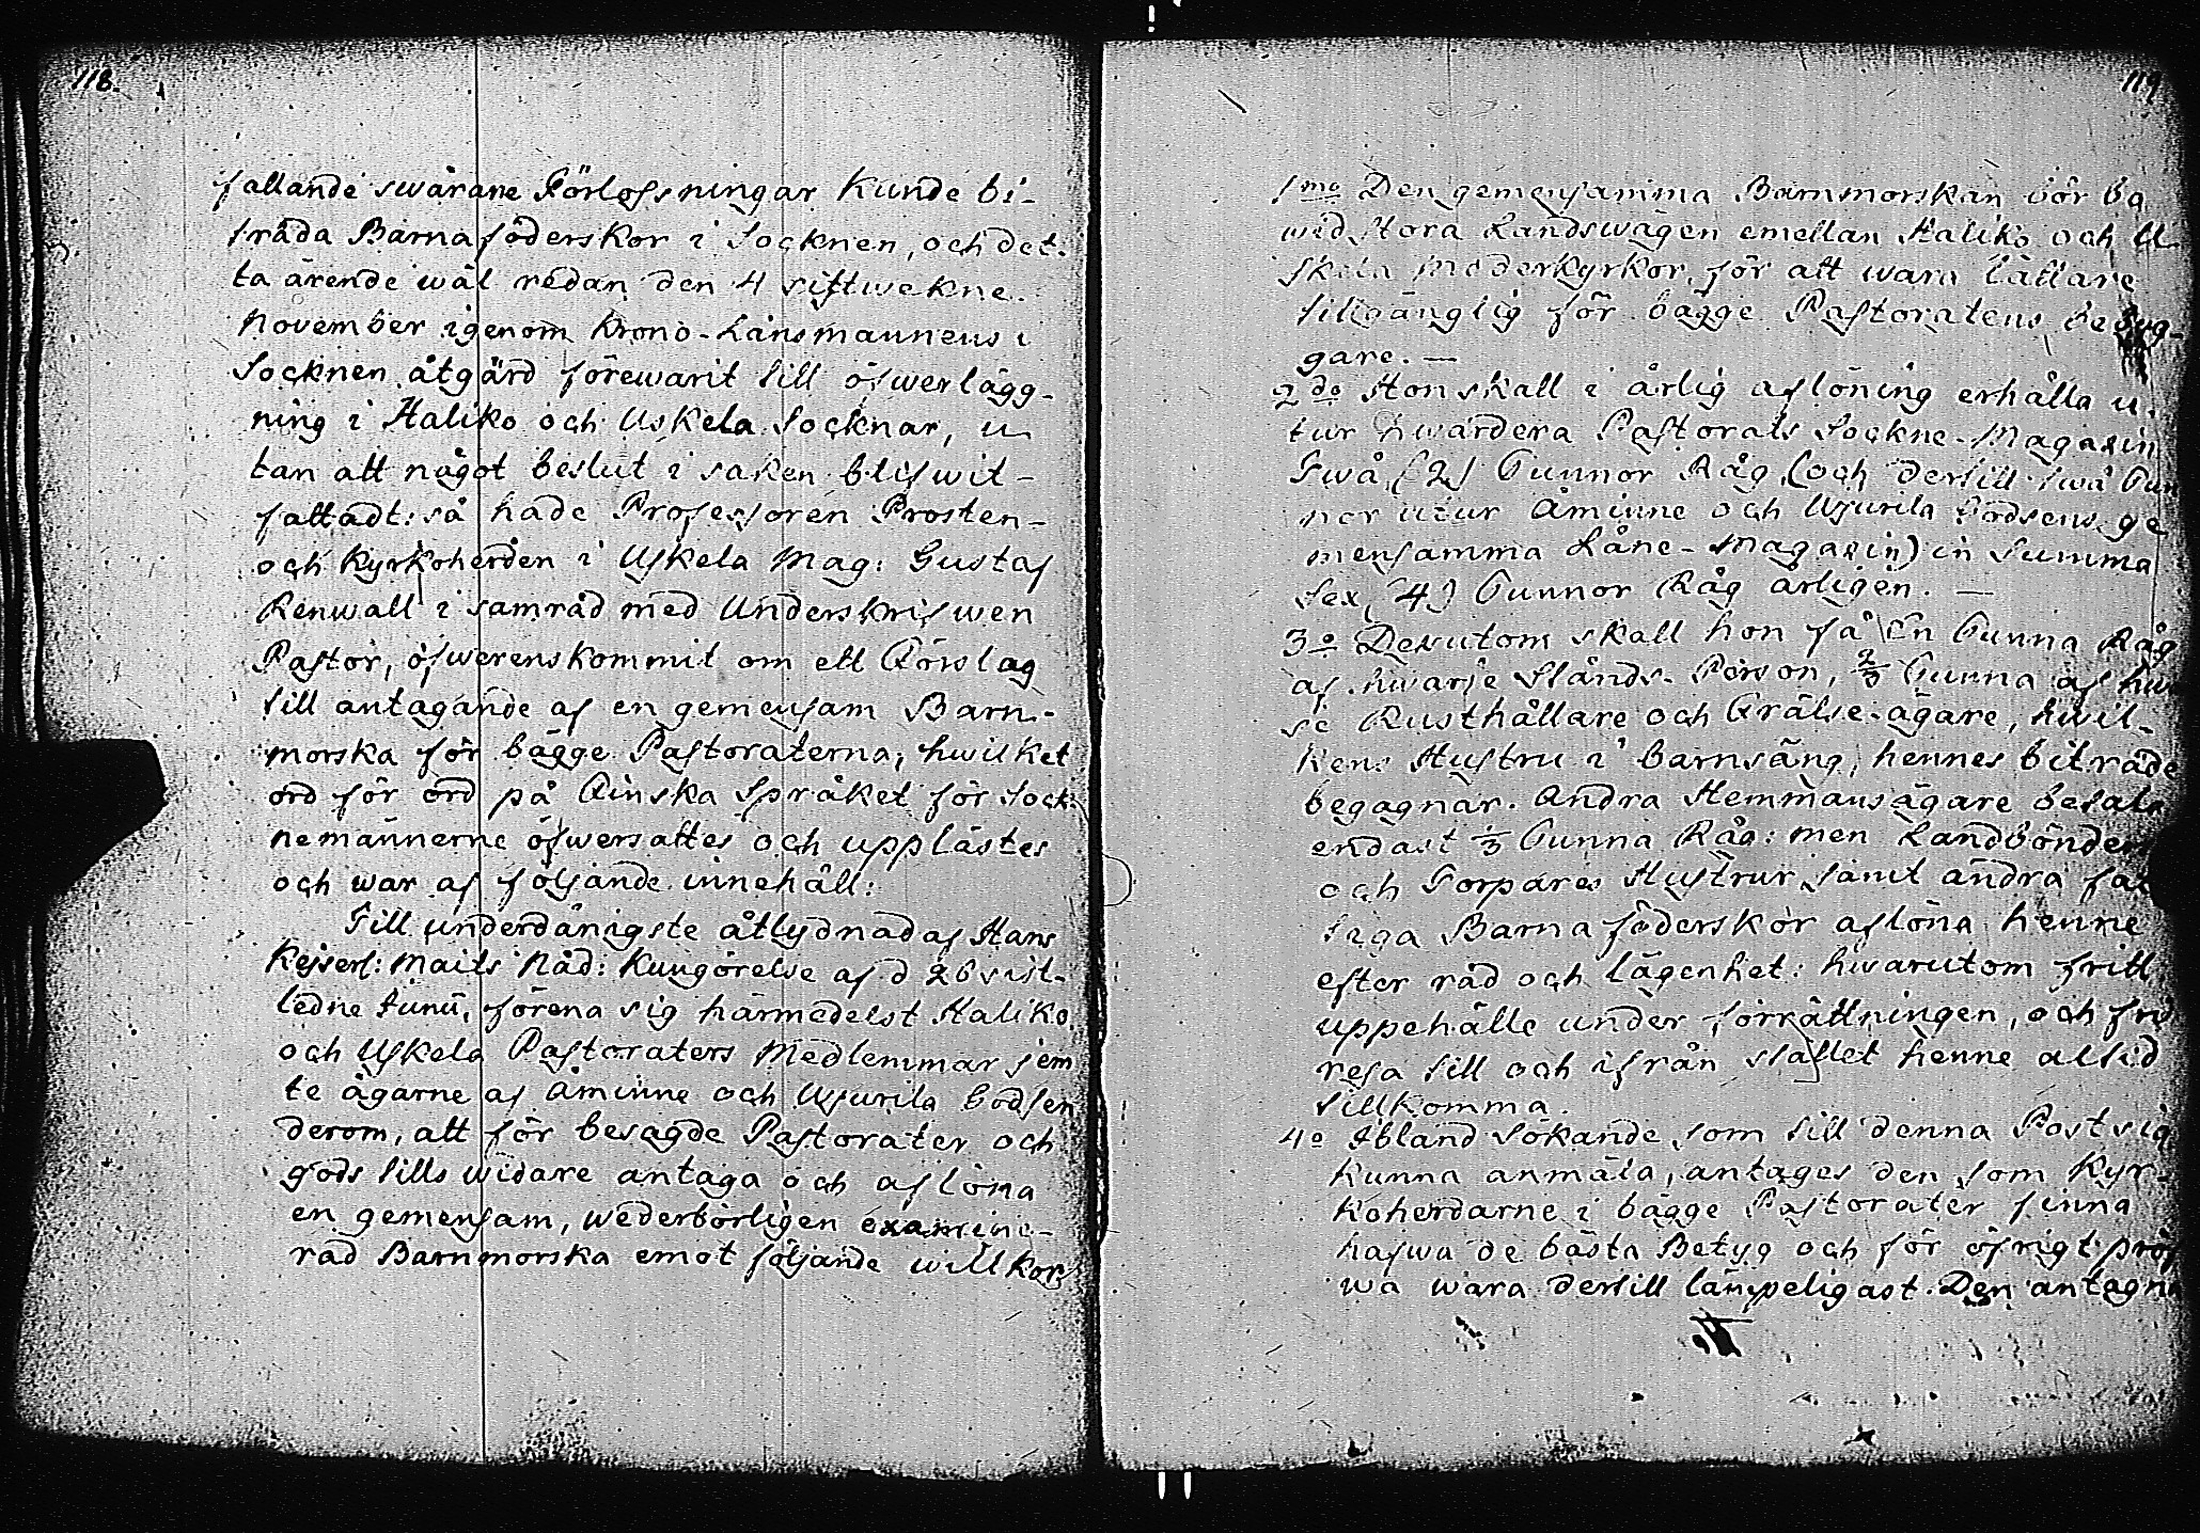 118.
fallande swårare Förlossningar kunde bi-
träda Barnaföderskor i Socknen, och det-
ta ärende wäl redan den 4 sistwekne
November igenom Krono-Länsmannens i
Socknen åtgärd förewarit till öfwerlägg-
ning i Haliko och Uskela Socknar, u-
tan att något beslut i saken blifwit
fattadt: så hade Professoren Prosten
och Kyrkoherden i Uskela Mag: Gustaf
Renwall i samråd med Underskrifwen
Pastor, öfwerenskommit om ett Förslag
till antagande af en gemensam Barn-
morska för bägge Pastoraterna, hwilket
ord för ord på Finska Språket för Sock-
nemännerne öfwersattes och upplästes
och war af följande innehåll:
Till underdånigste åtlydnad af Hans
Kejserl: Maits Nåd: Kungörelse af d 26 sist-
ledne Junii, förena sig härmedelst Haliko
och Uskela Pastoraters Medlemmar jem
te ägarne af Åminne och Wjurila Godsen
derom, att för besagde Pastorater och
gods tills widare antaga och aflöna
en gemensam, wederbörligen examine-
rad Barnmorska emot följande willkor
119
1mo Den gemensamma Barnmorskan bör bo
wid Stora Landswägen emellan Haliko och U-
skela Moderkyrkor, för att wara lättare
tillgänglig för bägge Pastoratens bebyg-
gare. —
2do Hon skall i årlig aflöning erhålla u-
tur hwardera Pastorats Sockne-Magasin
Twå (2) Tunnor Råg, (och dertill twå Tun
nor utur Åminne och Wjurila Godsens ge
mensamma Låne-Magazin) in Summa
Sex (4) Tunnor Råg årligen. —
3o Desutom skall hon få En Tunna Råg
af hwarje Stånds-Person, 2/3 Tunna af hwar
je Rusthållare och Frälse-ägare, hwil-
kens Hustru i barnsäng, hennes biträde
begagnar. Andra Hemmansägare betala
endast 1/3 Tunna Råg: men Landbönders
och Torpares Hustrur, samt andra fat
tiga Barnaföderskor aflöna henne
efter råd och lägenhet: hwarutom fritt
uppehälle under förrättningen, och fri
resa till och ifrån stället henne altid
tillkomma.
4o Ibland Sökande, som till denna Post sig
kunna anmäla, antages den som Kyr-
koherdarne i bägge Pastorater finna
hafwa de bästa Betyg och för öfrigt pröf
wa wara dertill lämpeligast. Den antagna